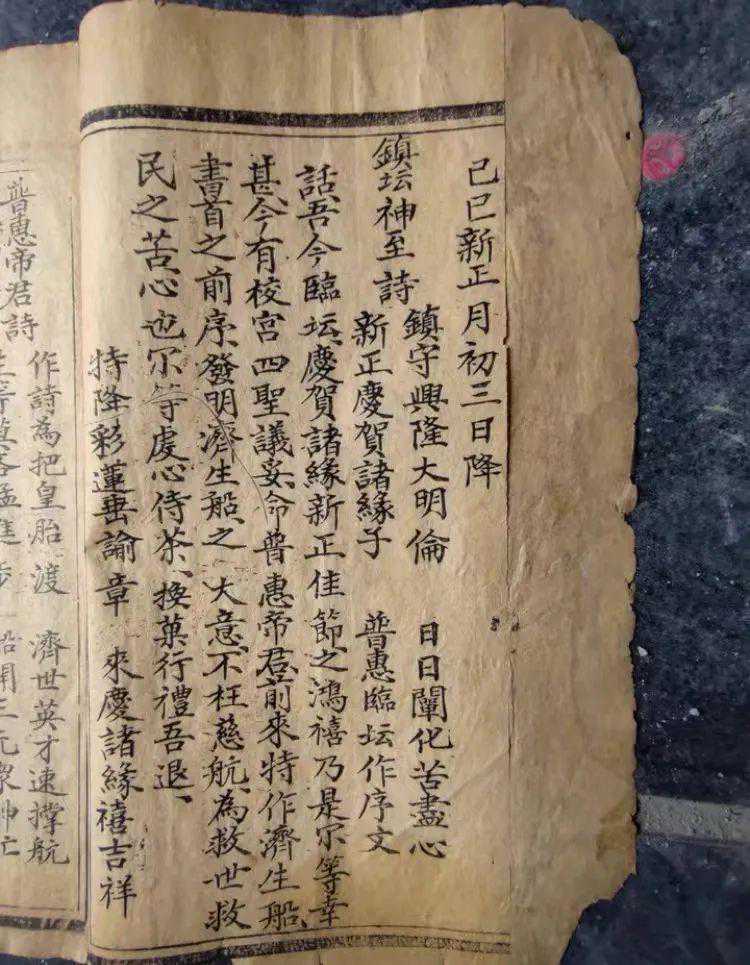 己巳新正月初三日降
鎮守興隆大明倫　日日闡化苦盡心
鎮坛神至詩
新正慶賀諸緣子　普惠臨坛作序文
話吾今臨坛、慶賀諸緣新正佳節之鴻禧乃是尔等幸
甚、今有校宮四聖議妥、命普惠帝君、前來特作濟生船、
書首之前序、發明濟生船之大意、不枉慈航、為救世救
民之苦心也尔等虔心侍茶、換菓行禮吾退、
特降彩蓮垂諭章　來慶諸緣禧吉祥
普惠帝君詩
作詩為把皇胎渡　濟世英才速撐航